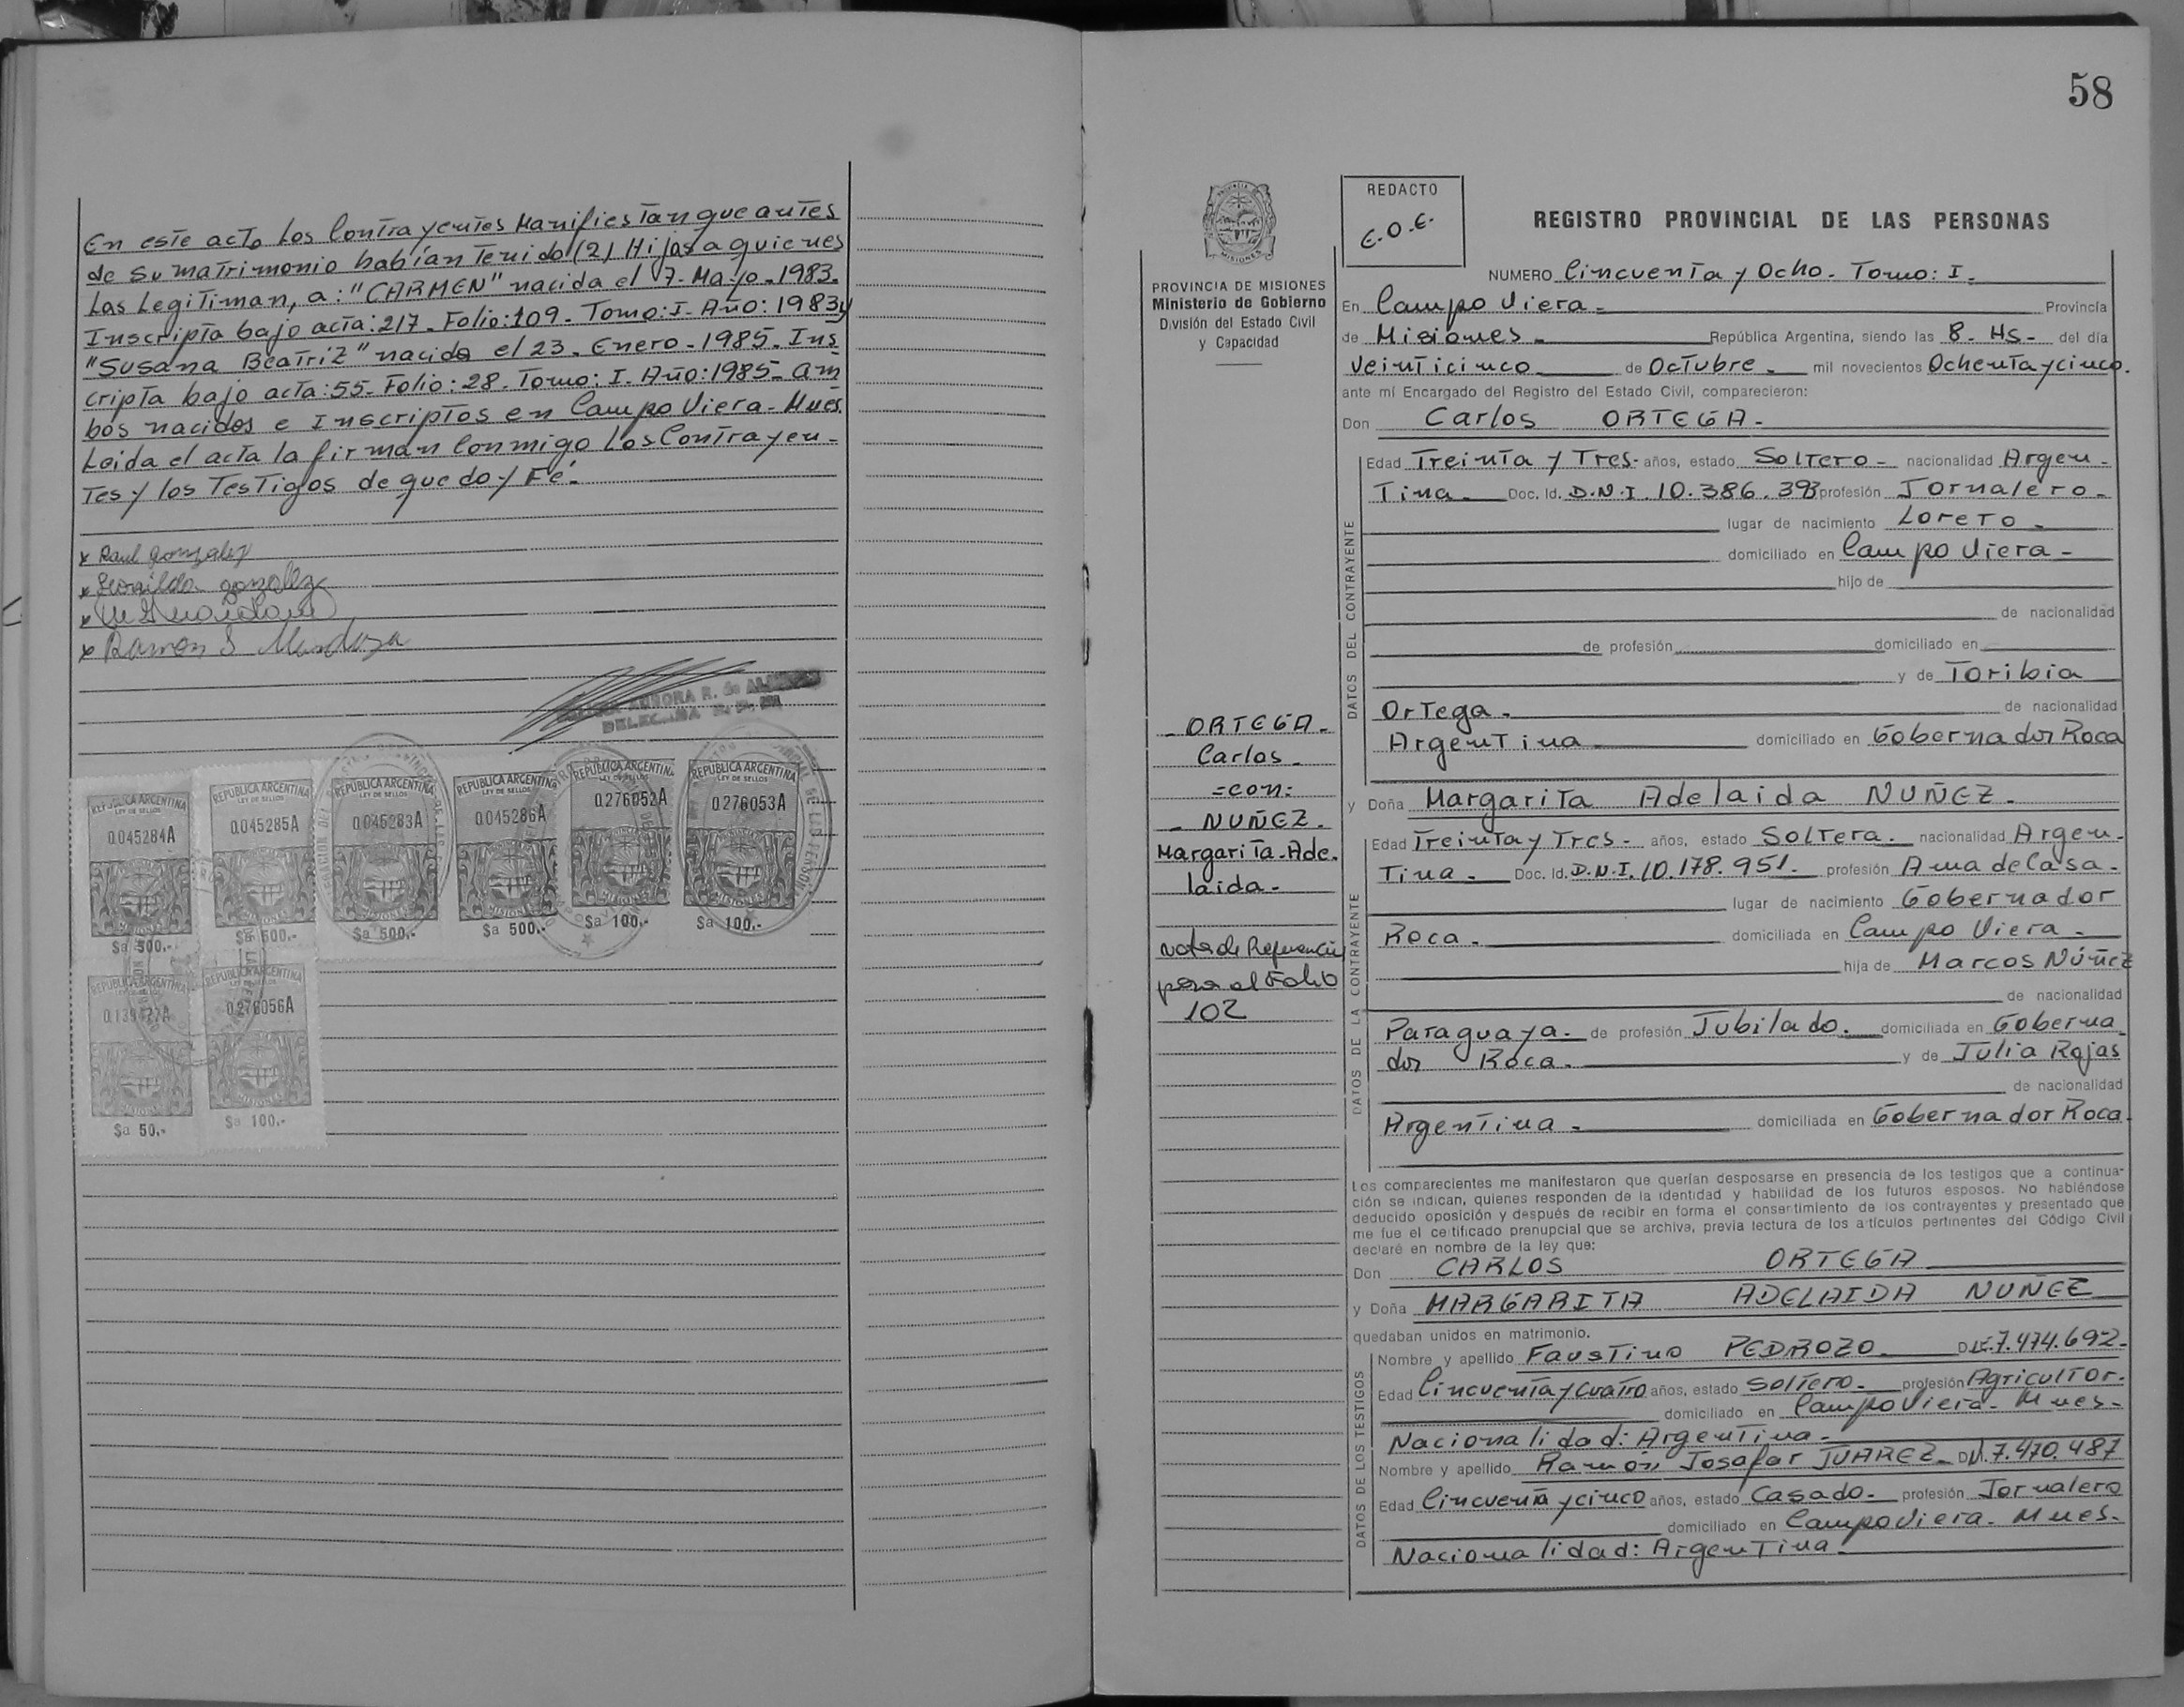 En este acto Los Contrayentes Manifiestan que antes
de su matrimonio habían Tenido (2) Hijas a quienes
Las Legitiman, a: "CARMEN" nacida el 7-Mayo-1983-
Inscripta bajo acta: 217- Folio: 109- Tomo: I- Año: 1983 y
"Susana Beatriz" nacida el 23-Enero-1985- Ins
cripta bajo acta: 55- Folio: 28- Tomo: I. Año: 1985- am
bos nacidos e Inscriptos en Campo Viera- Mnes.
Leida el acta la firman Conmigo Los Contrayen-
tes y los Testigos de que doy Fé.
x Raul Gonzalez
gonzalez
x Ramon S Mendoza
AURORA R. de
REPUBLICA ARGENTINA
LEY DE SELLOS
0.045284A
MISIONES
$a 500.-
REPUBLICA ARGENTINA
LEY DE SELLOS
0.045285A
MISIONES
$a 500.-
REPUBLICA ARGENTINA
LEY DE SELLOS
0.045283A
MISIONES
$a 500.-
REPUBLICA ARGENTINA
LEY DE SELLOS
0.045286A
MISIONES
$a 500.-
REPUBLICA ARGENTINA
LEY DE SELLOS
0.276052A
MISIONES
$a 100.-
REPUBLICA ARGENTINA
LEY DE SELLOS
0.276053A
MISIONES
$a 100.-
REPUBLICA ARGENTINA
$a 50.-
REPUBLICA ARGENTINA
0.276056A
MISIONES
$a 100.-
58
PROVINCIA DE MISIONES
Ministerio de Gobierno
División del Estado Civil
y Capacidad
- ORTEGA -
Carlos -
= con:
- NUÑEZ -
Margarita-Ade-
laida -
Nota de Referencia
para el Folio
102
REDACTO
E.O.E.
REGISTRO PROVINCIAL DE LAS PERSONAS
NUMERO Cincuenta y Ocho- Tomo: I-
En Campo Viera- Provincia
de Misiones- República Argentina, siendo las 8- HS- del día
Veinticinco de Octubre- mil novecientos Ochenta y cinco.
ante mí Encargado del Registro del Estado Civil, comparecieron:
Don Carlos ORTEGA-
DATOS DEL CONTRAYENTE
Edad Treinta y Tres- años, estado Soltero- nacionalidad Argen-
Tina- Doc. Id. D.N.I. 10.386.393 profesión Jornalero-
lugar de nacimiento Loreto-
domiciliado en Campo Viera-
hijo de
de nacionalidad
de profesión domiciliado en
y de Toribia
Ortega- de nacionalidad
Argentina domiciliado en Gobernador Roca
y Doña Margarita Adelaida NUÑEZ-
DATOS DE LA CONTRAYENTE
Edad Treinta y Tres- años, estado Soltera- nacionalidad Argen-
Tina- Doc. Id. D.N.I. 10.178.951- profesión Ama de Casa-
lugar de nacimiento Gobernador
Roca- domiciliada en Campo Viera-
hija de Marcos Núñez
de nacionalidad
Paraguaya- de profesión Jubilado- domiciliada en Goberna
dor Roca- y de Julia Rojas
de nacionalidad
Argentina- domiciliada en Gobernador Roca.
Los comparecientes me manifestaron que querían desposarse en presencia de los testigos que a continua-
ción se indican, quienes responden de la identidad y habilidad de los futuros esposos. No habiéndose
deducido oposición y después de recibir en forma el consertimiento de los contrayentes y presentado que
me fue el certificado prenupcial que se archiva, previa lectura de los artículos pertinentes del Código Civil
declaré en nombre de la ley que:
Don CARLOS ORTEGA
y Doña MARGARITA ADELAIDA NUÑEZ
quedaban unidos en matrimonio.
DATOS DE LOS TESTIGOS
Nombre y apellido Faustino PEDROZO- 7.474.692-
Edad Cincuenta y Cuatro años, estado Soltero- profesión Agricultor.
domiciliado en Campo Viera- Mnes-
Nacionalidad: Argentina-
Nombre y apellido Ramón Josafar JUAREZ- 7.470.487
Edad Cincuenta y cinco años, estado Casado- profesión Jornalero
domiciliado en Campo Viera- Mnes-
Nacionalidad: Argentina-